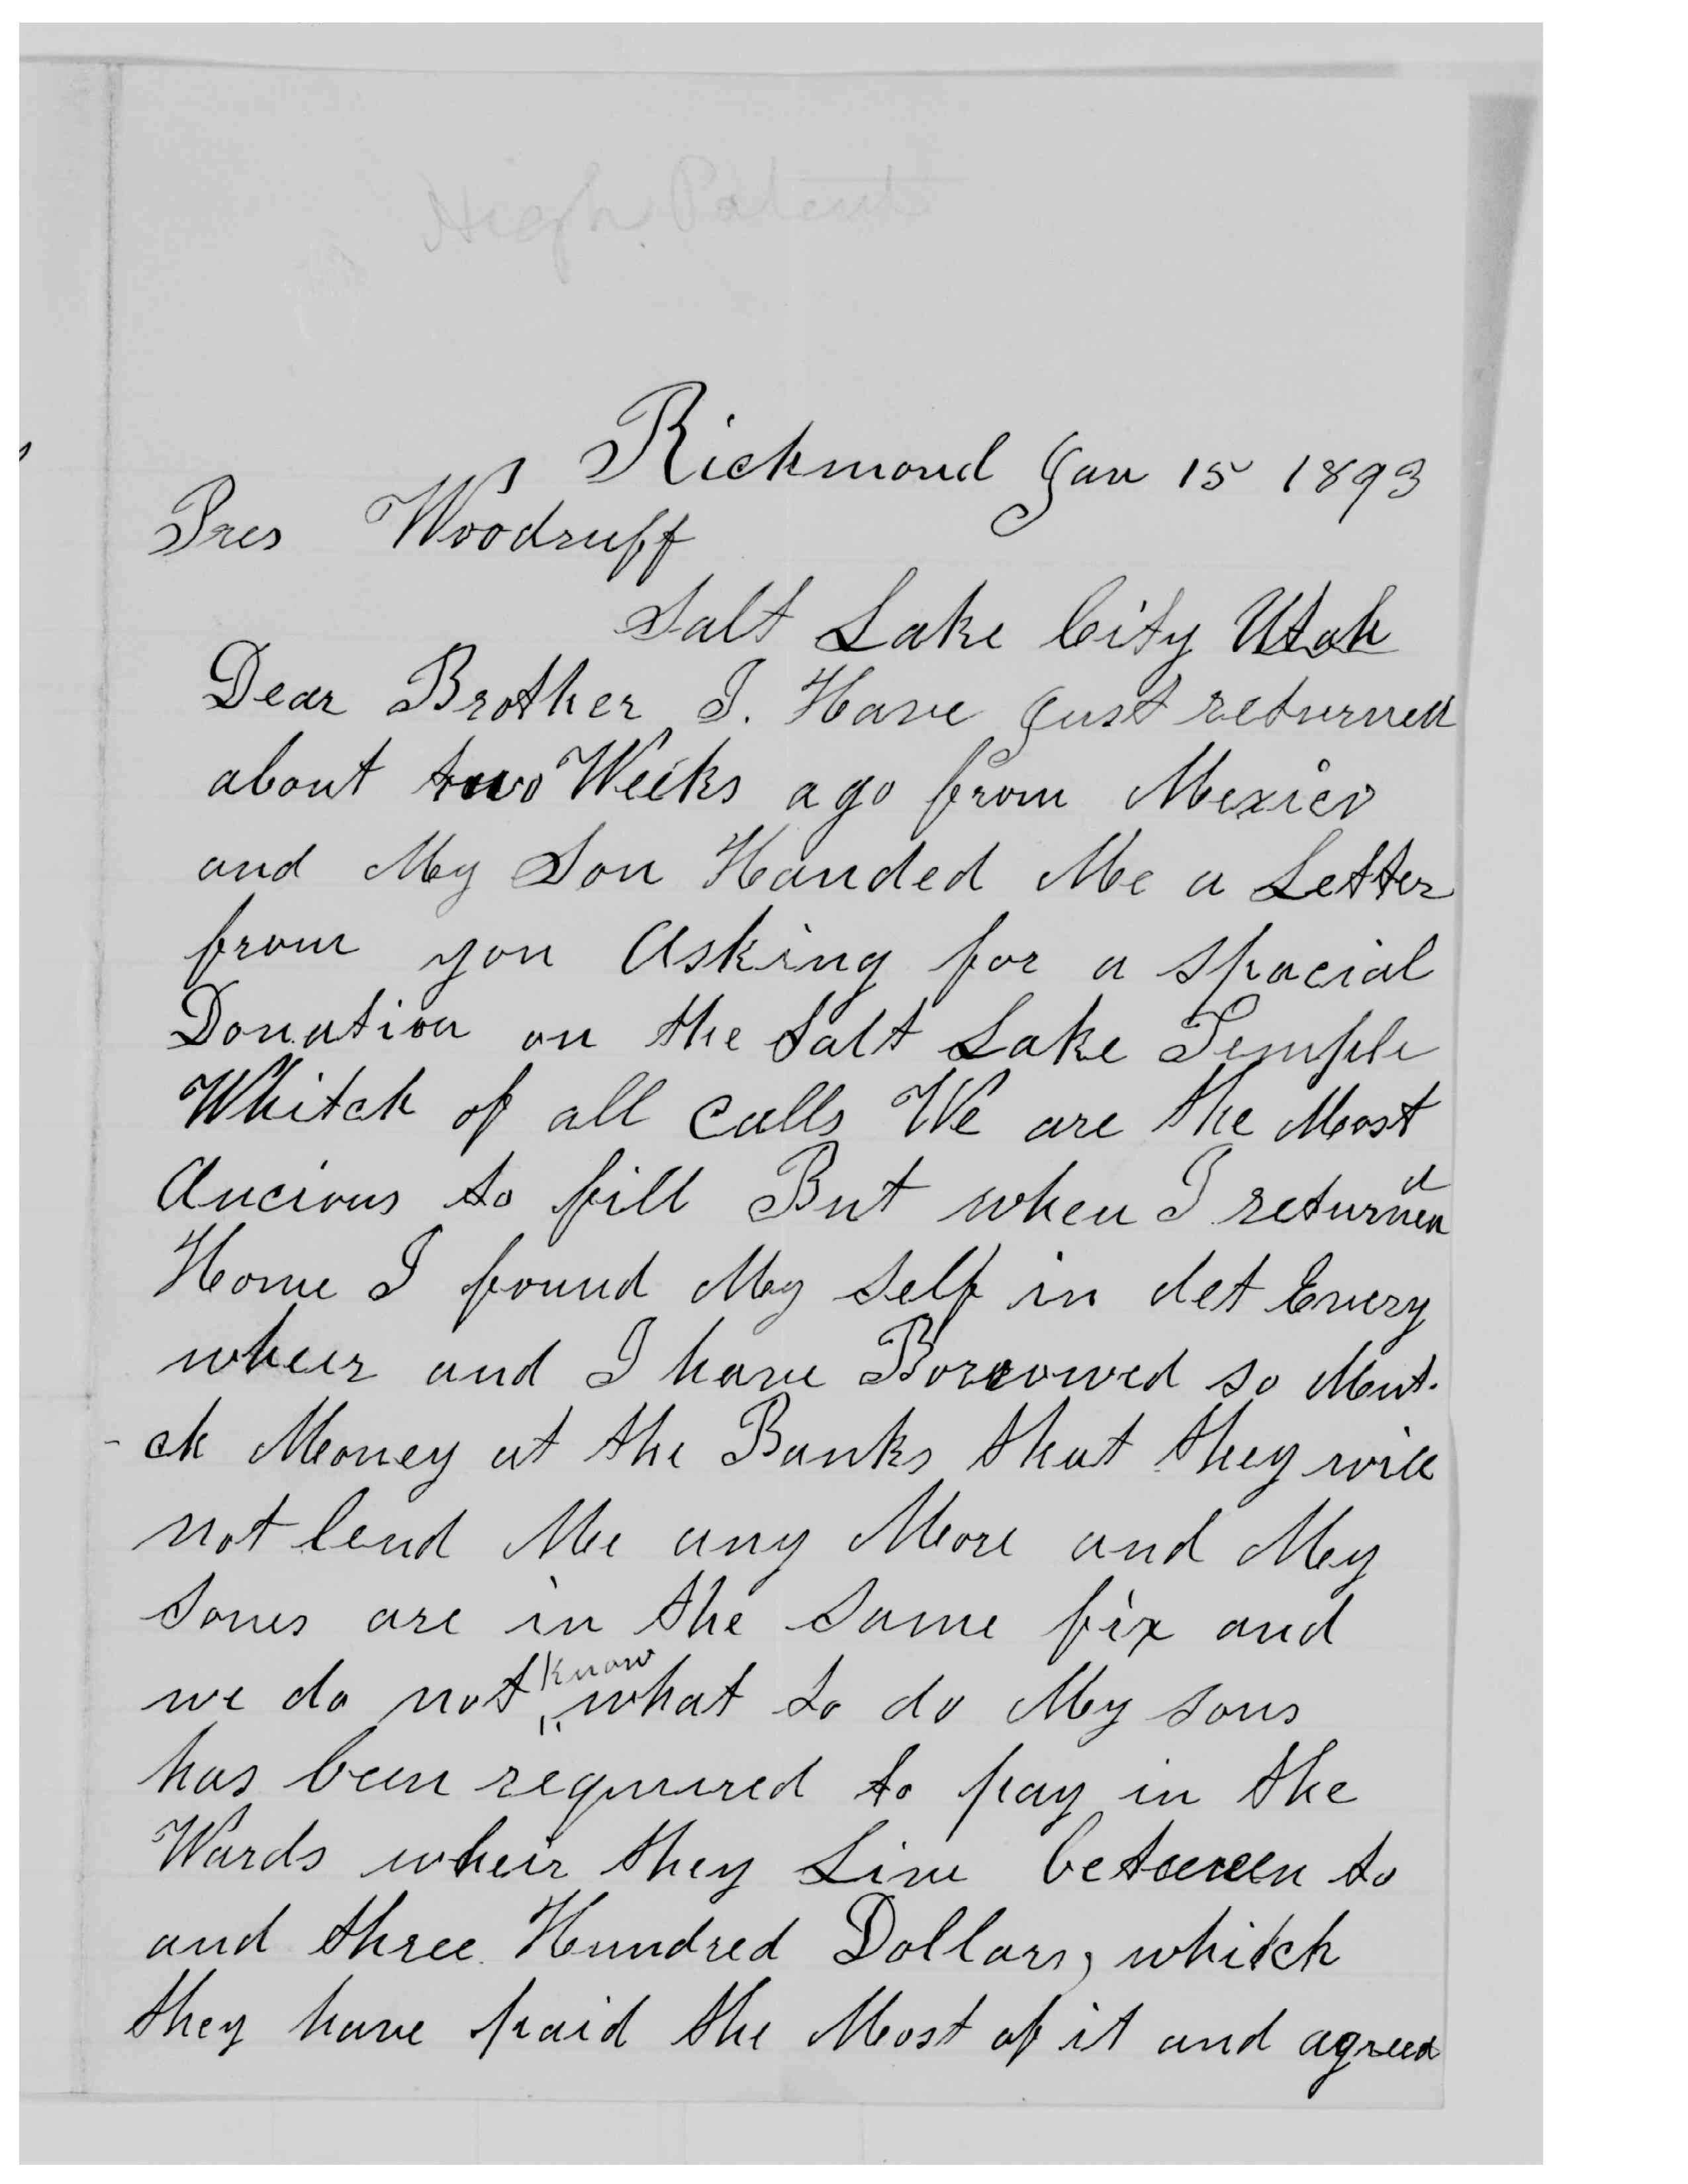 High
Richmond Jan 15 1893
Pres Woodruff
Salt Lake City Utah
Dear Brother I. Have Just returned
about two Weeks ago from Mexico
and My Son Handed Me a Letter
from you Asking for a spacial
Donation on the Salt Lake Temple
Whitch of all calls We are the Most
Ancious to fill But when I returned
Home I found My Self in det Every
wheir and I have Borrowed so Mut-
-ch Money at the Banks that they will
not lend Me any More and My
Sones are in the Same fix and
we do not know what to do My sons
has been requiured to pay in the
Wards wheir they Live between to
and three Hundred Dollars, whitch
they have paid the Most of it and agreed